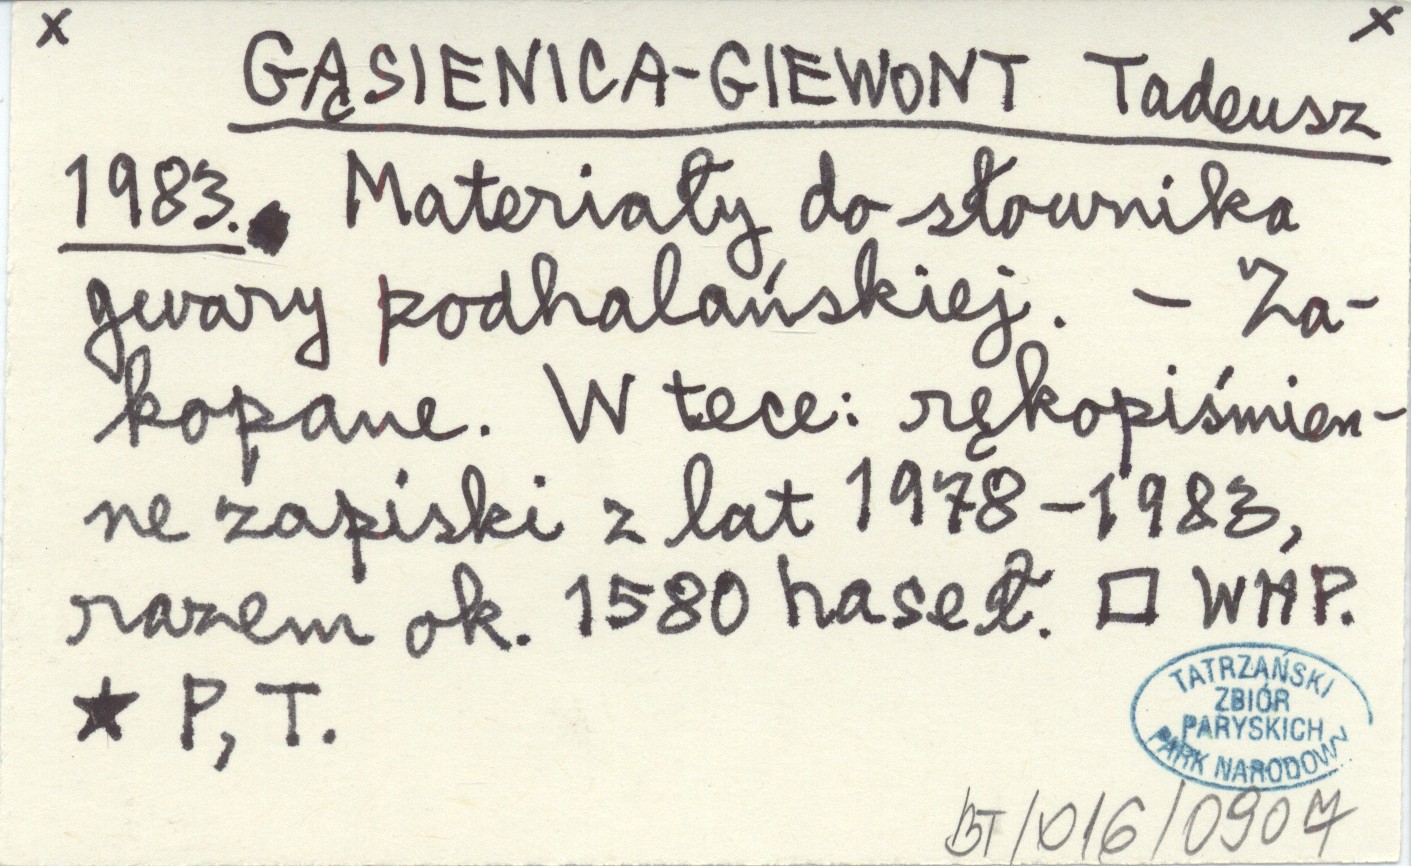 x x
GĄSIENICA-GIEWONT Tadeusz
1983. Materiały do słownika
gwary podhalańskiej. – Za-
kopane. W tece: rękopiśmien-
ne zapiski z lat 1978–1983,
razem ok. 1580 haseł. □ WHP.
★ P, T.
TATRZAŃSKI
ZBIÓR
PARYSKICH
PARK NARODOWY
BT/016/0907